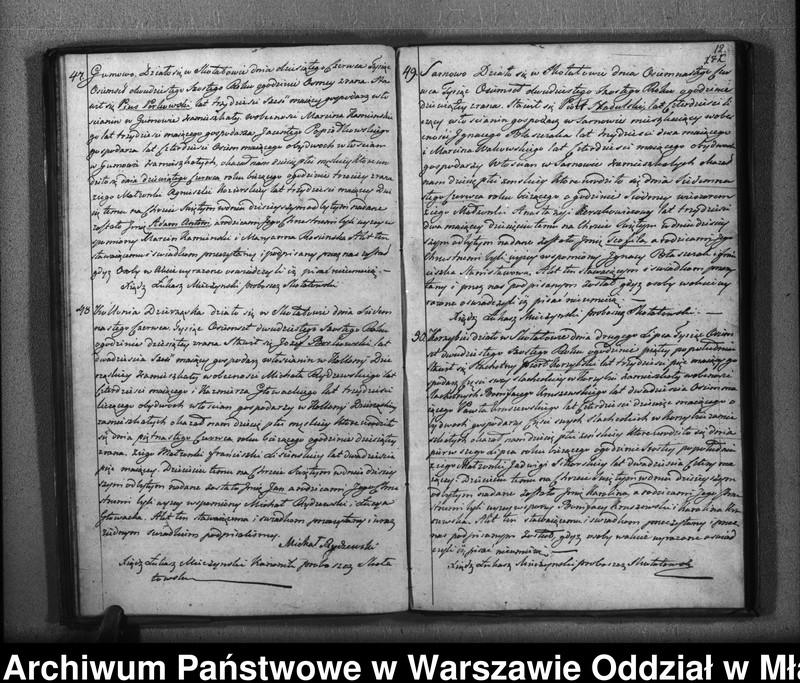 47 Gumowo. Działo się w Skołatowie dnia dziesiątego Czerwca Tysiąc
Osimset dwudziestego Szostego Roku ogodzinie Osmey zrana. Sta
wił się Pius lat trzydzieści Sześć maiący gospodarz wło
scianin w Gumowie zamieszkały wobecnosci Marcina Kaminskie
go lat trzydziesci maiącego gospodarza, Jacentego
gospodarza lat Czterdziesci Osim maiącego obydwoch włoscian
w Gumowie zamieszkałych, okazał nam dziecię płci męskiey które uro
dziło się dnia dziewiątego Czerwca roku bieżącego ogodzinie trzeciey zrana
z iego Małżonki Agnieszki lat trzydziesci maiącey Dzie
cięciu temu na Chrzcie Swiętym w dniu dzisieyszym odbytym nadane
zostało Imię Adam Antoni arodzicami Jego Chrzestnemi byli wyzey w
pomiony Marcin Kaminski i Maryanna Rosinska Akt ten
stawaiącemu i swiadkom przeczytany i podpisany przez nas
gdyz Osoby w Akcie wyrazone oswiadczyli iż pisac nieumieią.
Xiądz Łukasz Mieczynski proboszcz Skołatowski
48 Kollonia Dzierzązka działo się w Skołatowie dnia Siedem
nastego Czerwca Tysiąc Osimset dwudziestego Szostego Roku
ogodzinie dziesiątey zrana Stawił się Jozef lat
dwadziescia Sześć maiący gospodarz włoscianin w Kollonij Dzie
rząskiey zamieszkały w obecnosci Michała Rydzewskiego lat
Czterdziesci maiącego i Kazimierza Głowackiego lat trzydziesci
liczącego obydwoch włoscian gospodarzy w Kollonij Dzierząskiey
zamieszkałych okazał nam dziecię płci męskiey które urodziło
się dnia piętnastego Czerwca roku bieżącego ogodzinie dziesiątey
zrana. z iego Małżonki Franciszki lat dwadziescia
pięc maiącey. Dziecięciu temu na Chrzcie Swiętym w dniu dzisiey
szym odbytym nadane zostało Imię Jan arodzicami Jego Chrze
stnemi byli wyzey wspomniony Michał Rydzewski i Łucya
Głowacka. Akt ten stawaiącemu i swiadkom przeczytany i wraz
z iednym swiadkiem podpisalismy.
Michał Rydzewski
Xiądz Łukasz Mieczynski Kanonik proboszcz Skoła
towski
12
49 Sarnowo Działo się w Skołatowie dnia Osiemnastego Czer
wca Tysiąc Osimset dwudziestego Szostego Roku ogodzinie
dziewiątey zrana. Stawił się Piotr lat Czterdziesci li
czący włoscianin gospodarz w Sarnowie mieszkaiący wobec
nosci Jgnacego lat trzydziesci dwa maiącego
i Marcina lat Czterdziesci maiącego obydwoch
gospodarzy włoscian w Sarnowie zamieszkałych okazał
nam dziecię płci zenskiey które urodziło się dnia Siedemna
stego Czerwca roku bieżącego ogodzinie Siodmey wieczorem
z iego Małżonki Anastazyi lat trzydziesci
dwa maiącey dziecięciu temu na Chrzcie Swiętym w dniu dzisiey
szym odbytym nadane zostało Imię a rodzicami Jego
Chrzestnemi byli wyzey wspomniony Jgnacy i Fran
ciszka Akt ten stawaiącemu i swiadkom przeczy
tany i przez nas podpisanym został gdyz osoby w akcie wy
razone oswiadczyli iż pisac nieumieią.
Xiądz Łukasz Mieczynski proboszcz Skołatowski.
50 działo się w Skołatowie dnia drugiego Lipca Tysiąc Osim
set dwudziestego Szostego Roku ogodzinie piątey popołudniu
Stawił się Szlachetny lat trzydziesci pięc maiący go
spodarz Częsci swey Szlacheckiey w zamieszkały wobecnosci
Szlachetnych Bonifacego lat dwadziescia Osim ma
iącego Pawła lat Czterdziesci dziewięc maiącego o
bydwoch gospodarzy Częsci swych Szlacheckich w zamie
szkałych okazał nam dziecię płci zenskiey które urodziło się dnia
pierwszego Lipca roku bieżącego ogodzinie popołudniu
z iego Małżonki Jadwigi lat dwadziescia Cztery ma
iącey. dziecięciu temu na Chrzcie Swiętym w dniu dzisieyszym
odbytym nadane zostało Imię Karolina, a rodzicami Jego Chrze
stnemi byli wyzey wspom. Bonifacy i Karolina
Akt ten stawaiącemu i swiadkom przeczytany i przez
nas podpisanym został, gdyz osoby w akcie wyrazone oswiad
czyli iż pisac nieumieią.
Xiądz Łukasz Mieczynski proboszcz Skołatowski
Archiwum Państwowe w Warszawie Oddział w Mła